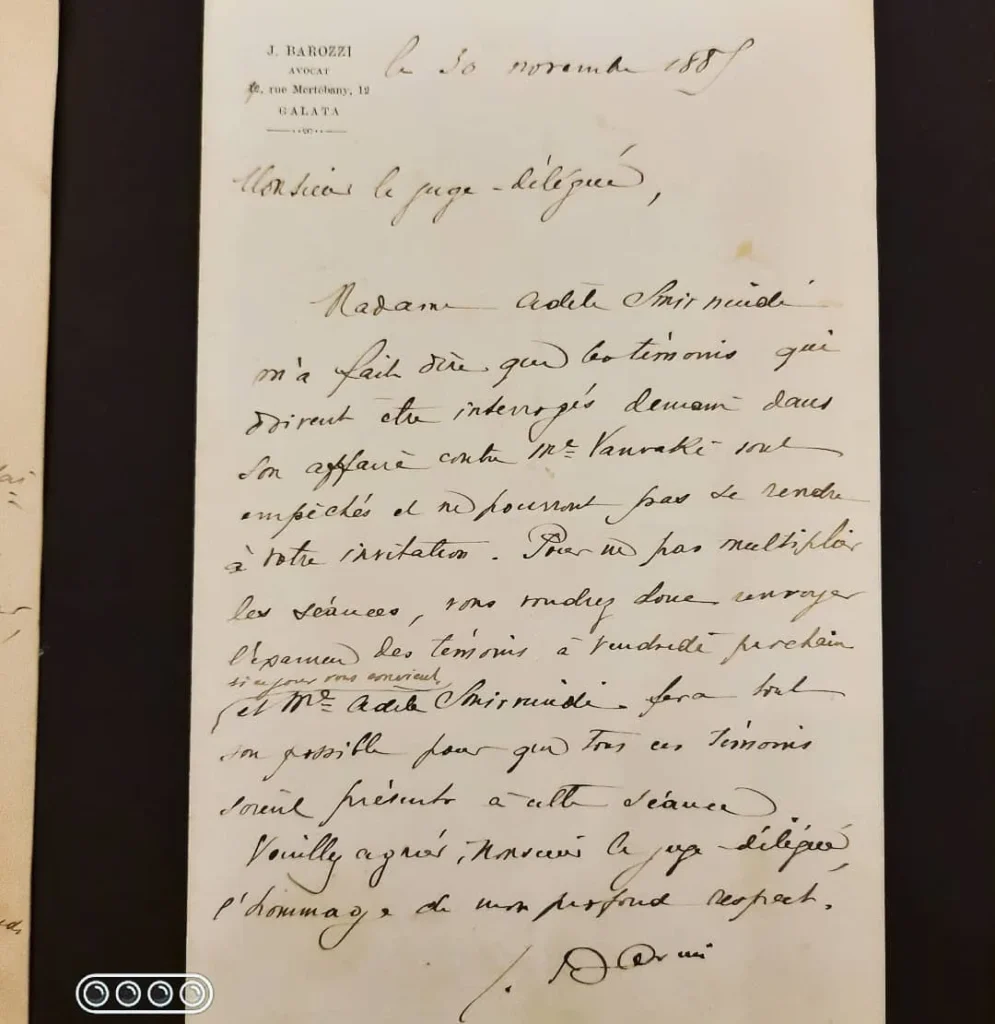 J. BAROZZI
AVOCAT
12, rue Mertébany, 12
GALATA
le 30 novembre 1885
Monsieur le juge-délégué,
Madame Adèle Smirniudi
m'a fait dire que les témoins qui
doivent être interrogés demain dans
son affaire contre Mr Vanvaki sont
empêchés et ne pourront pas se rendre
à votre invitation. Pour ne pas multiplier
les séances, vous voudrez donc renvoyer
l'examen des témoins à vendredi prochain
si ce jour vous convient,
et Me Adèle Smirniudi fera tout
son possible pour que tous ces témoins
soient présents à cette séance
Veuillez agréer, Monsieur le juge-délégué,
l'hommage de mon profond respect.
J. Barozzi